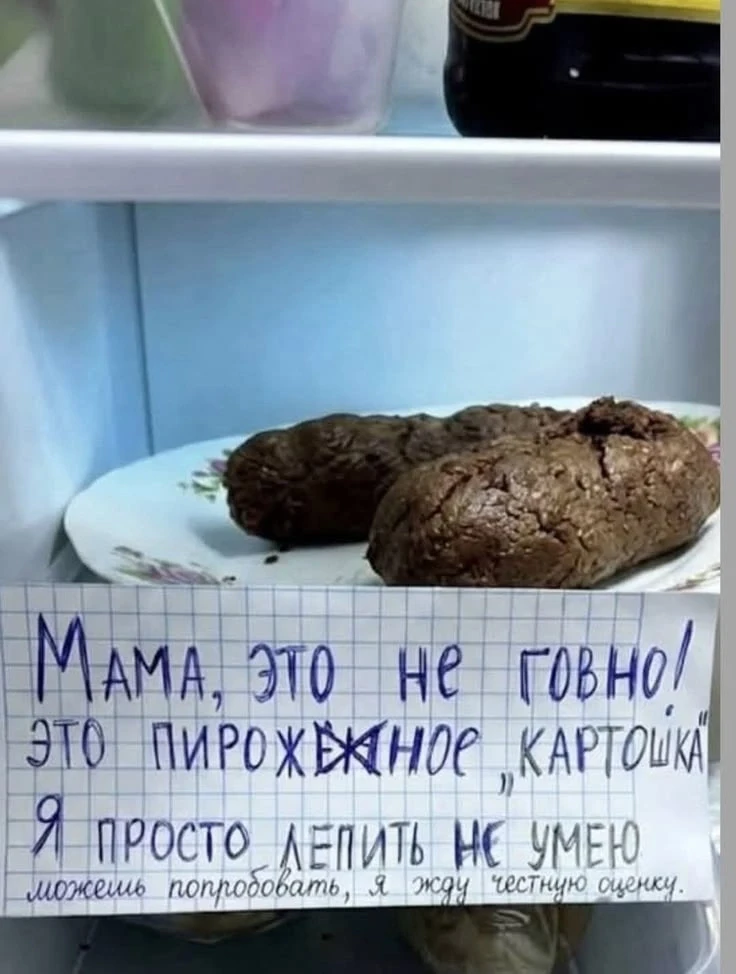 Мама, это не говно!
это пирожное „картошка"
Я просто лепить не умею
можешь попробовать, я жду честную оценку.